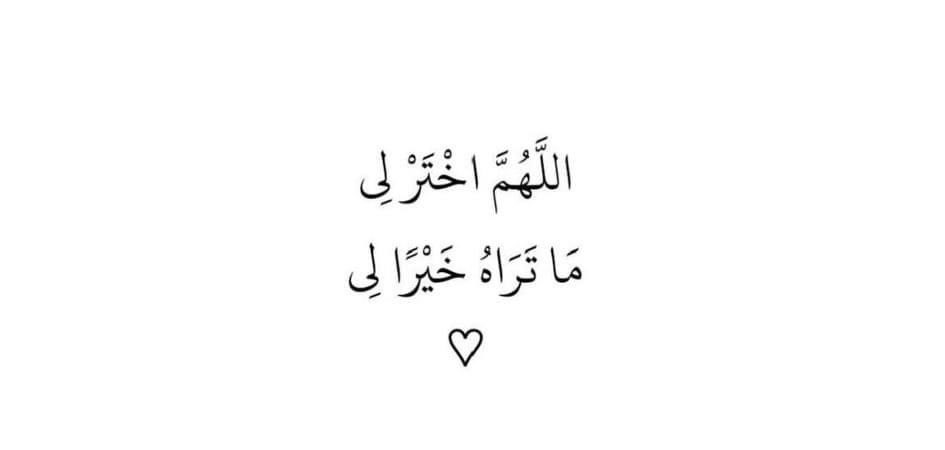 اللَّهُمَّ اخْتَرْ لِى
مَا تَرَاهُ خَيْرًا لِى
♡